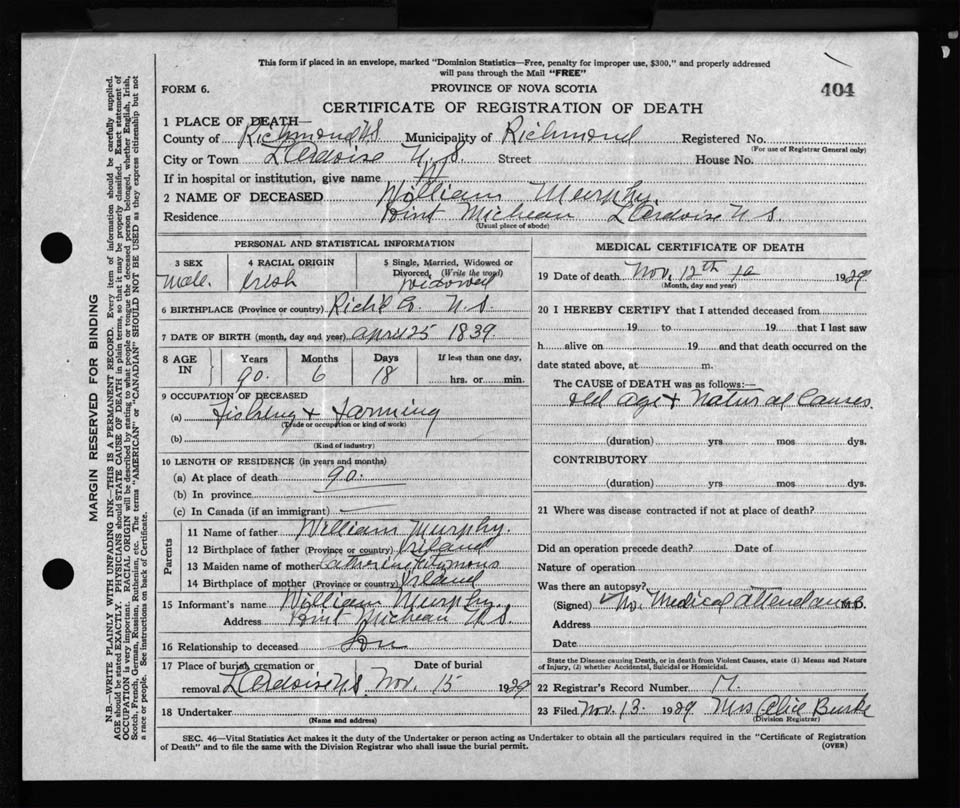 This form if placed in an envelope, marked "Dominion Statistics—Free, penalty for improper use, $300," and properly addressed
will pass through the Mail "FREE"
FORM 6. PROVINCE OF NOVA SCOTIA 404
CERTIFICATE OF REGISTRATION OF DEATH
1 PLACE OF DEATH—
County of Richmond N.S. Municipality of Richmond Registered No.
(For use of Registrar General only)
City or Town L'Ardoise N.S. Street House No.
If in hospital or institution, give name
2 NAME OF DECEASED William Murphy.
Residence Micheau L'Ardoise N.S.
(Usual place of abode)
PERSONAL AND STATISTICAL INFORMATION
3 SEX 4 RACIAL ORIGIN 5 Single, Married, Widowed or
Divorced, (Write the word)
Male. Irish widowed
6 BIRTHPLACE (Province or country) Rich'd Co. N.S.
7 DATE OF BIRTH (month, day and year) April 25 1839.
8 AGE IN Years Months Days If less than one day,
90. 6 18 hrs. or min.
9 OCCUPATION OF DECEASED
(a) Fishing + Farming
(Trade or occupation or kind of work)
(b)
(Kind of industry)
10 LENGTH OF RESIDENCE (in years and months)
(a) At place of death 90.
(b) In province
(c) In Canada (if an immigrant)
Parents
11 Name of father William Murphy.
12 Birthplace of father (Province or country) Irland
13 Maiden name of mother Catherine
14 Birthplace of mother (Province or country) Irland
15 Informant's name William Murphy.
Address Micheau N.S.
16 Relationship to deceased Son
17 Place of burial, cremation or Date of burial
removal L'Ardoise N.S. Nov. 15 1929
18 Undertaker
(Name and address)
MEDICAL CERTIFICATE OF DEATH
19 Date of death Nov. 12th 1929
(Month, day and year)
20 I HEREBY CERTIFY that I attended deceased from
19 to 19 that I last saw
h alive on 19 and that death occurred on the
date stated above, at m.
The CAUSE OF DEATH was as follows:—
Old Age + Natural Causes.
(duration) yrs mos dys.
CONTRIBUTORY
(duration) yrs mos dys.
21 Where was disease contracted if not at place of death?
Did an operation precede death? Date of
Nature of operation
Was there an autopsy?
(Signed) No. Medical attendance M.D.
Address
Date
State the Disease causing Death, or in death from Violent Causes, state (1) Means and Nature
of Injury, (2) whether Accidental, Suicidal or Homicidal.
22 Registrar's Record Number 17.
23 Filed Nov. 13 1929 Mrs Alice Burke
(Division Registrar)
SEC. 46—Vital Statistics Act makes it the duty of the Undertaker or person acting as Undertaker to obtain all the particulars required in the "Certificate of Registration
of Death" and to file the same with the Division Registrar who shall issue the burial permit. (OVER)
MARGIN RESERVED FOR BINDING
N.B.—WRITE PLAINLY WITH UNFADING INK—THIS IS A PERMANENT RECORD. Every item of information should be carefully supplied.
AGE should be stated EXACTLY. PHYSICIANS should STATE CAUSE OF DEATH in plain terms, so that it may be properly classified. Exact statement of
OCCUPATION is very important. RACIAL ORIGIN will be described by stating to what people or tongue the deceased person belonged, whether English, Irish,
Scotch, French, German, Russian, Ruthenian, etc. The terms "AMERICAN" or "CANADIAN" SHOULD NOT BE USED as they express citizenship but not
a race or people. See instructions on back of Certificate.